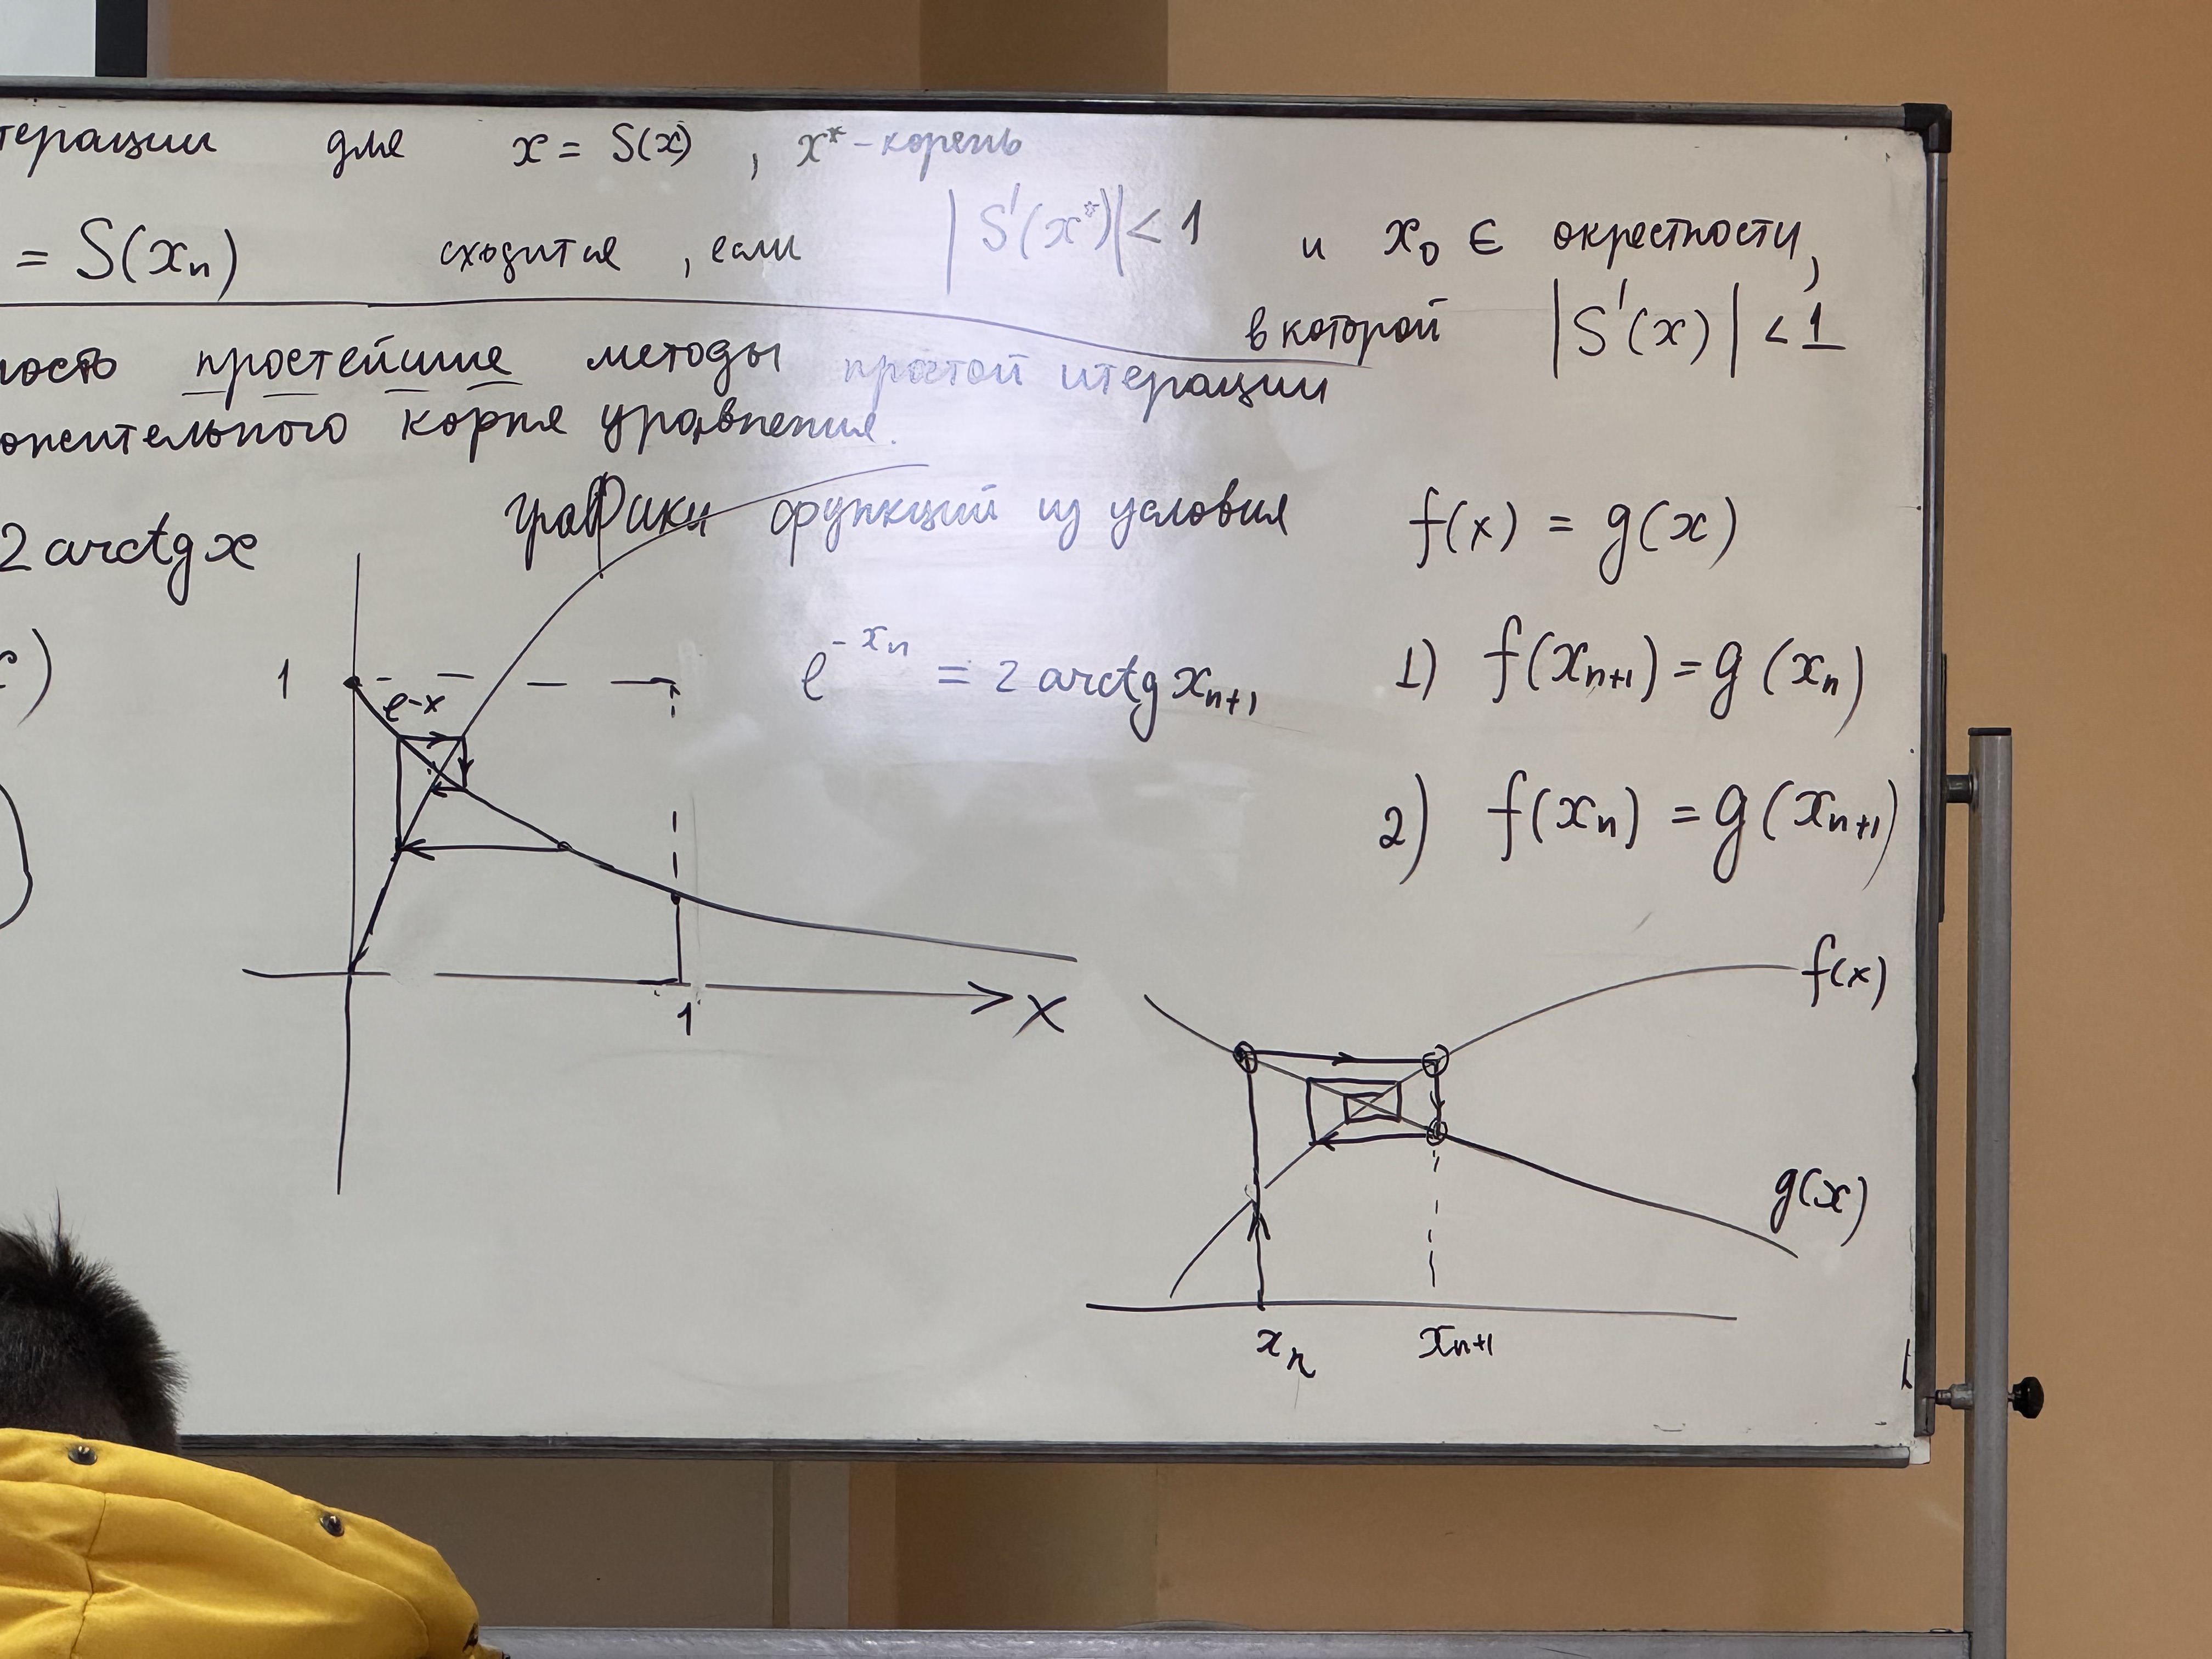 терации для x = S(x) , x* - корень
= S(xₙ) сходится , если |S'(x*)| < 1 и x₀ ∈ окрестности,
в которой |S'(x)| < 1
ность простейшие методы простой итерации
ожительного корня уравнения.
графики функций из условия f(x) = g(x)
2 arctg x
1) f(xₙ₊₁) = g(xₙ)
1
e^-x
e^(-xₙ) = 2 arctg xₙ₊₁
2) f(xₙ) = g(xₙ₊₁)
1
x
f(x)
g(x)
xₙ xₙ₊₁